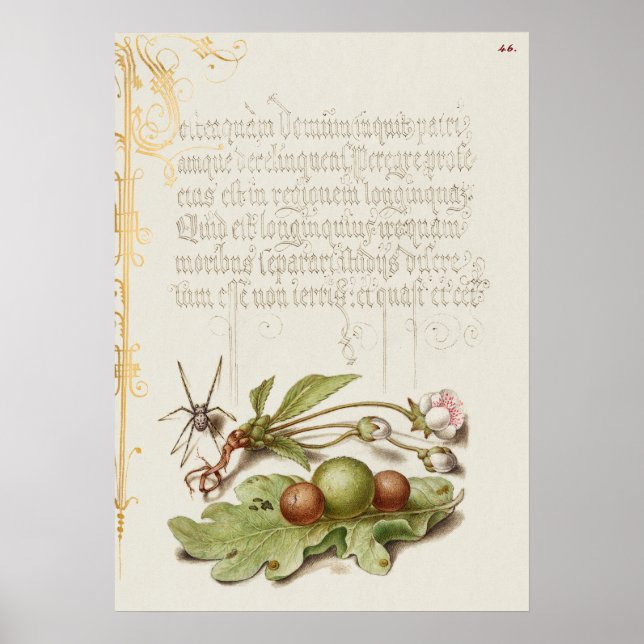 46.
Dominum quis patri
amque derelinquens Peregre profe
ctus est in regionem longinquam
Quid est longinquius
moribus separari studijs discre
tum esse non terris: et quasi